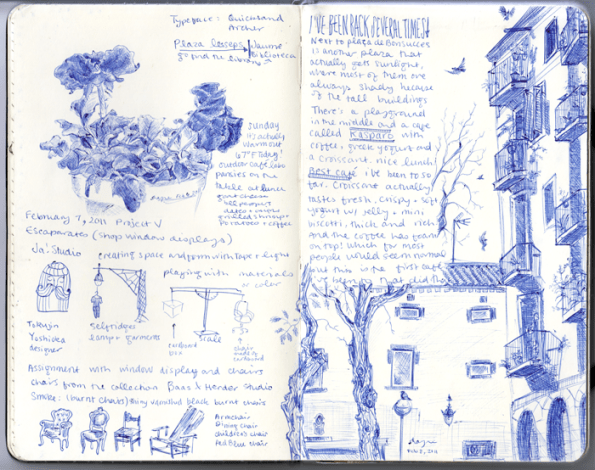 Typeface: Quicksand
Archer
Plaza Lesseps / Jaume
to find the library Biblioteca
Sunday
it's actually
warm out
67°F today!
outdoor café tables
pansies on the
table at lunch
goat cheese
dates + 
grilled shrimp +
potatoes + coffee
February 7, 2011 Project V
Escaparates (shop window displays)
Ja! Studio
creating space and form with tape + light
playing with materials
or color
Tokujin
Yoshioka
designer
Selfridges
lamp + garments
cardboard
box
scale
chair
made of
cardboard
Assignment with window display and chairs
chairs from the collection Baas & Studio
Smoke: (burnt chairs) shiny varnished black burnt chairs
Armchair
Dining chair
children's chair
Red Blue chair
I'VE BEEN BACK SEVERAL TIMES!
Next to plaza de Bonsucces
is another plaza that
actually gets sunlight,
where most of them are
always shady because
of the tall buildings
There's a playground
in the middle and a cafe
called Kasparo with
coffee, greek yogurt and
a croissant. nice lunch!
Best café i've been to so
far. Croissant actually
tastes fresh, crispy + soft
yogurt w/ jelly + mini
biscotti, thick and rich
and the coffee has foam
on top! which for most
people would seem normal
but this is the first café
I've been to that did that
Feb 8, 2011